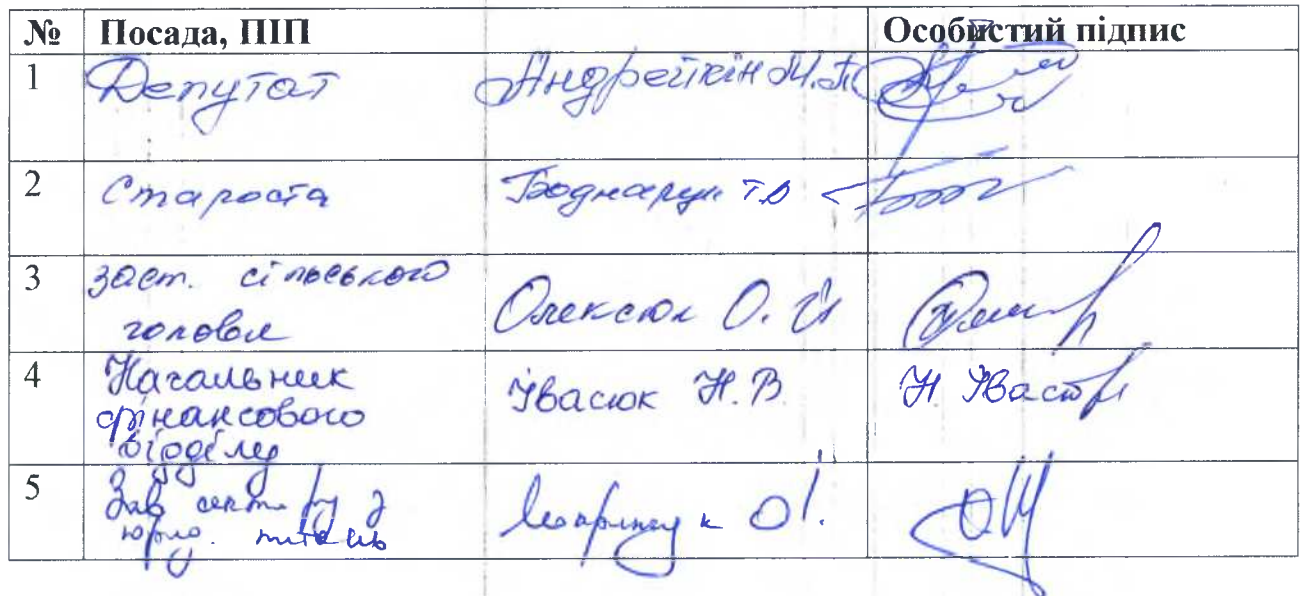 № Посада, ПІП Особистий підпис
1 Депутат Андрейкін М.П.
2 Староста Боднарук Т.В
3 заст. сільського
голови Олексюк О. Й
4 Начальник
фінансового Івасюк Н.В. Н Івасюк
відділу
5 Зав сектору з
юрид. питань О.І.